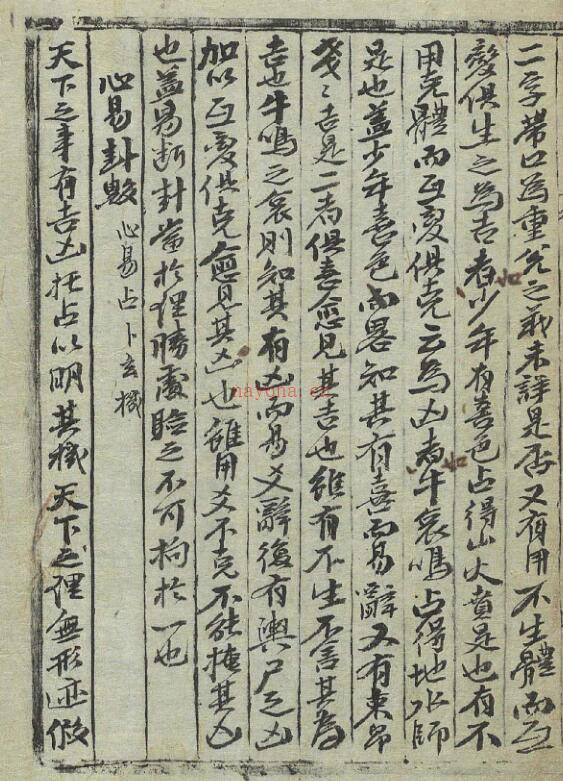 二字帶口為重兌之義未詳是否又有用不生體而互
變俱生之為吉者如少年有喜色占得山火賁是也有不
用克體而互變俱克之為凶者如牛哀鳴占得地水師
是也蓋少年喜色當畧知其有喜而易辭又有束帛
戔〻吉是二者俱喜愈見其吉也雖有不生不害其為
吉也牛鳴之哀則知其有凶而易爻辭復有輿尸之凶
加以互變俱克愈見其凶也雖用爻不克不能掩其凶
也蓋易斷卦當於理勝處驗之不可拘於一也
心易卦數
心易占卜玄機
天下之事有吉凶托占以明其機天下之理無形迹假
nayona.cn